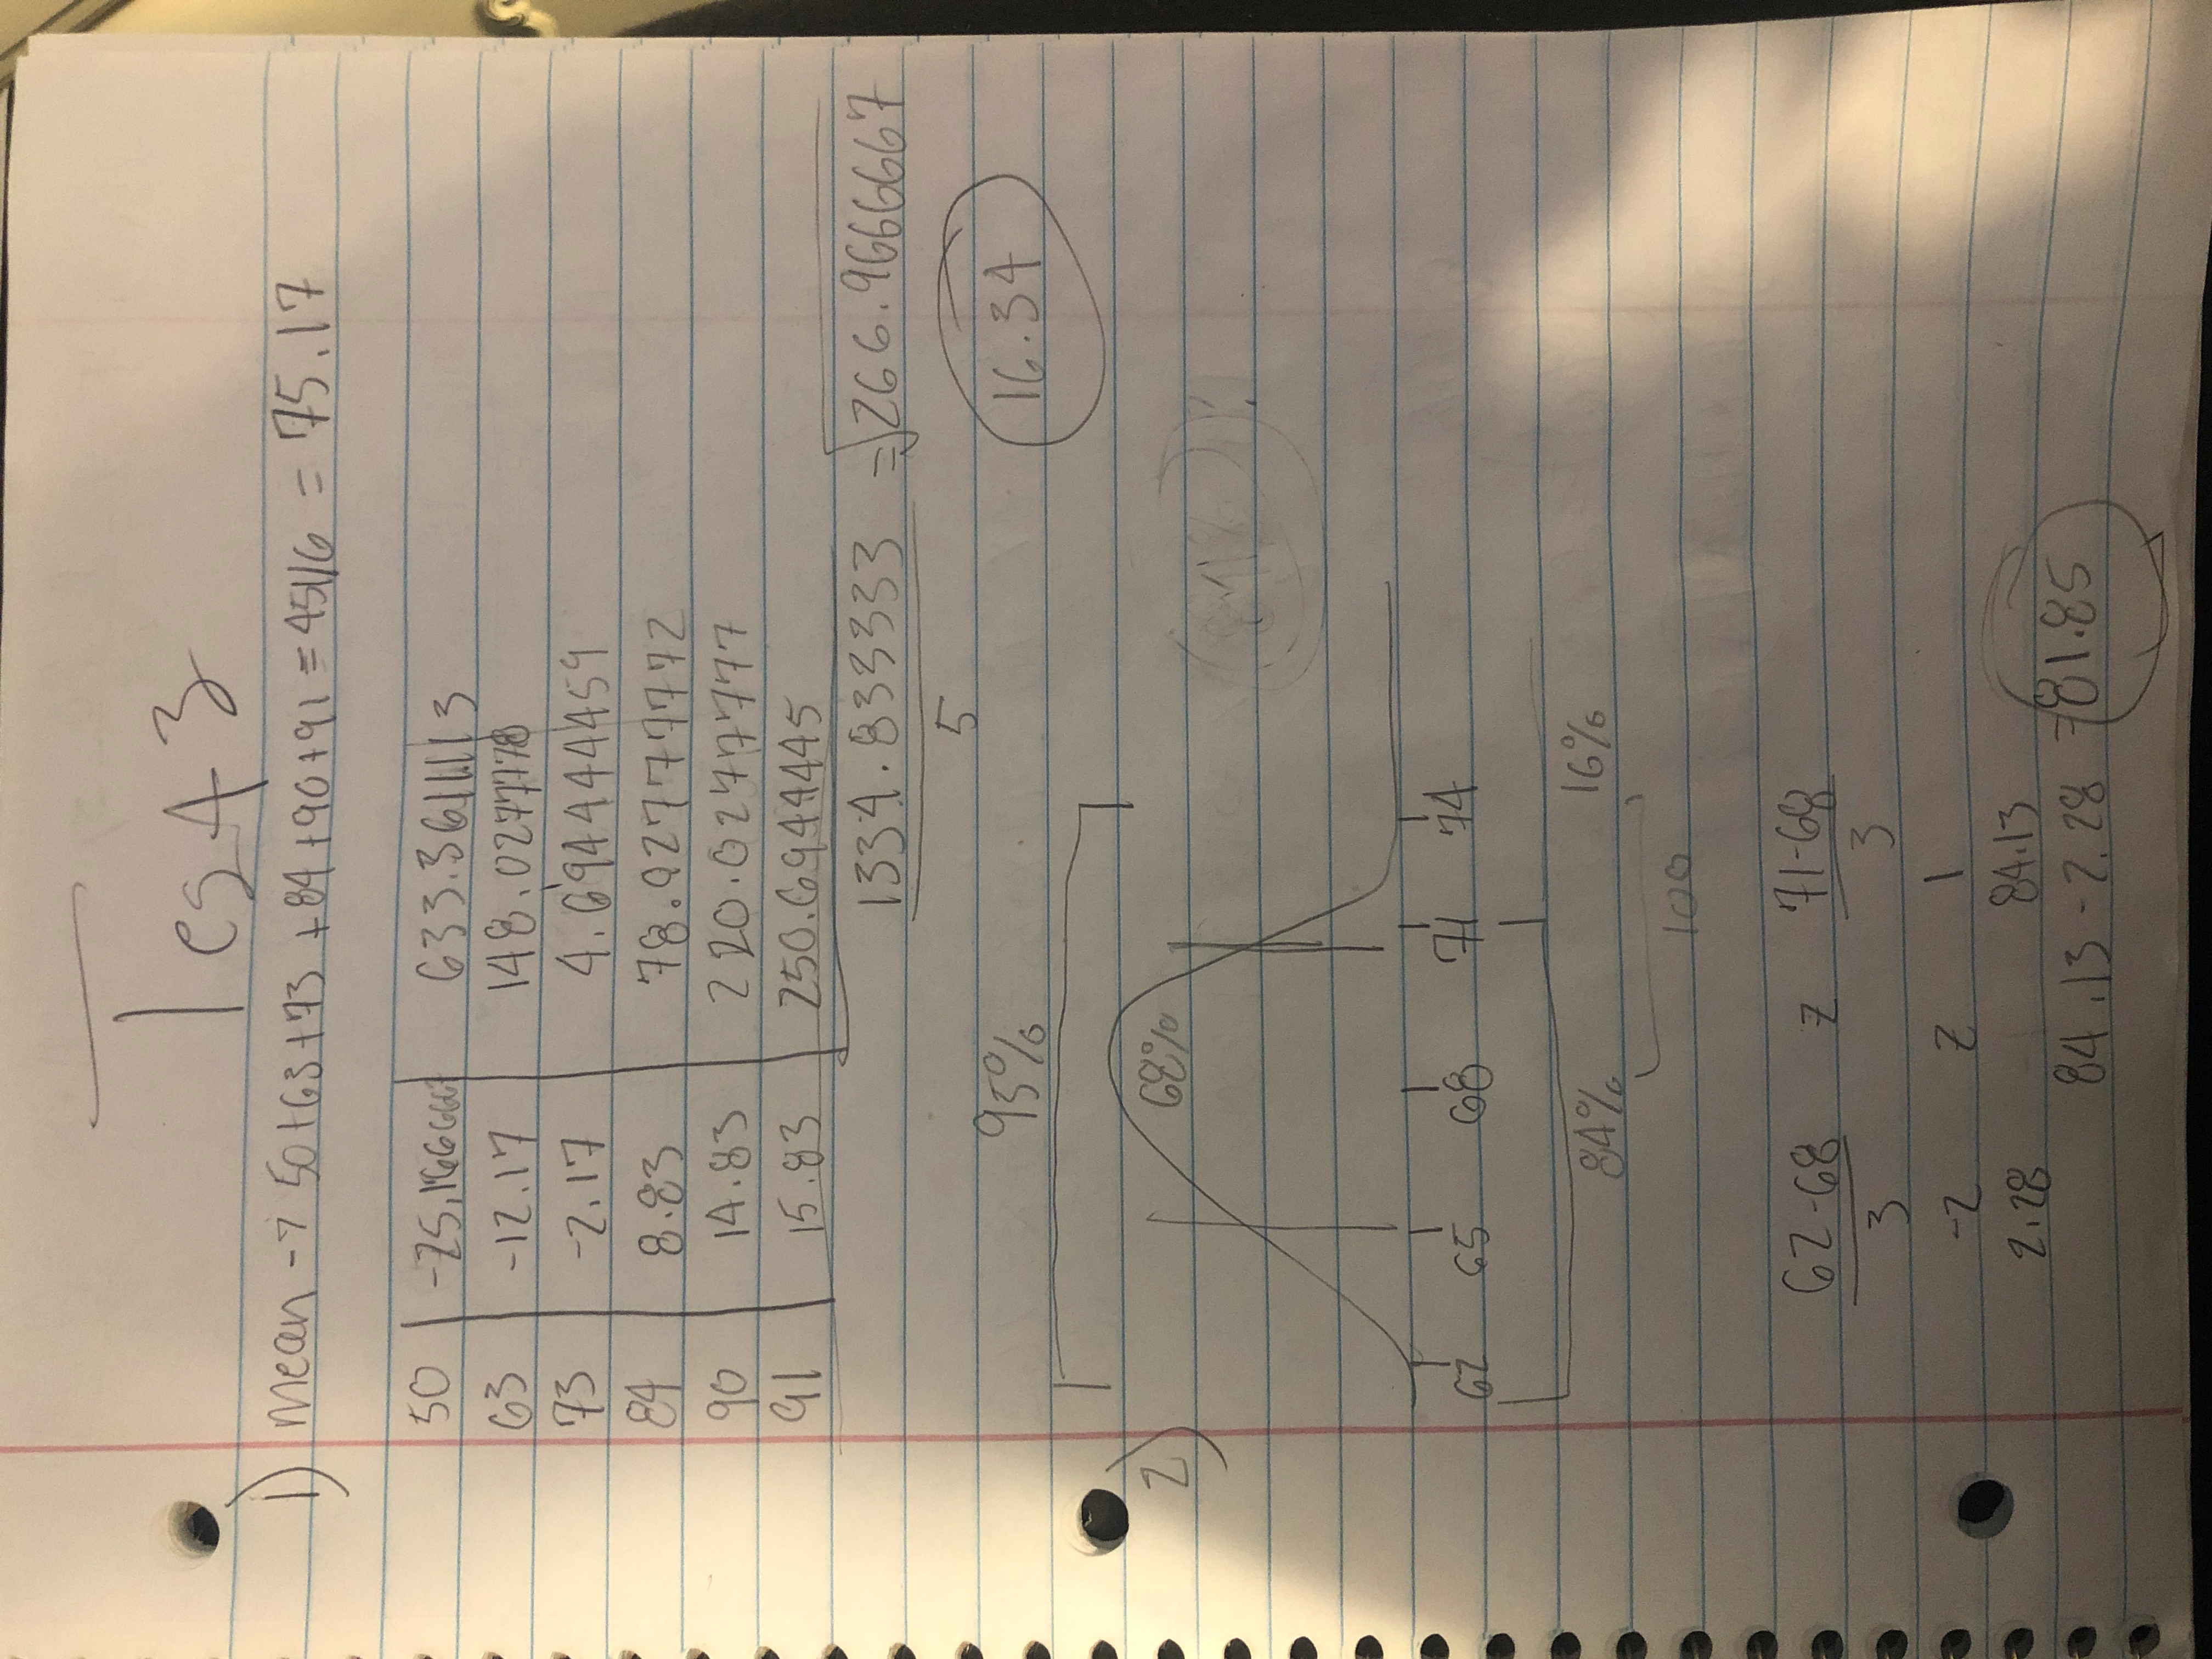 Test 3
1) Mean → 50+63+73+84+90+91 = 451/6 = 75.17
50 -25.166667 633.3611113
63 -12.17 148.0277778
73 -2.17 4.694444459
84 8.83 78.02777772
90 14.83 220.0277777
91 15.83 250.6944445
1334.833333 = √266.966667
5
16.34
2) 95%
68%
81%
62 65 68 71 74
84% 16%
100
62-68 z 71-68
3 3
-2 z 1
2.28 84.13
84.13 - 2.28 = 81.85